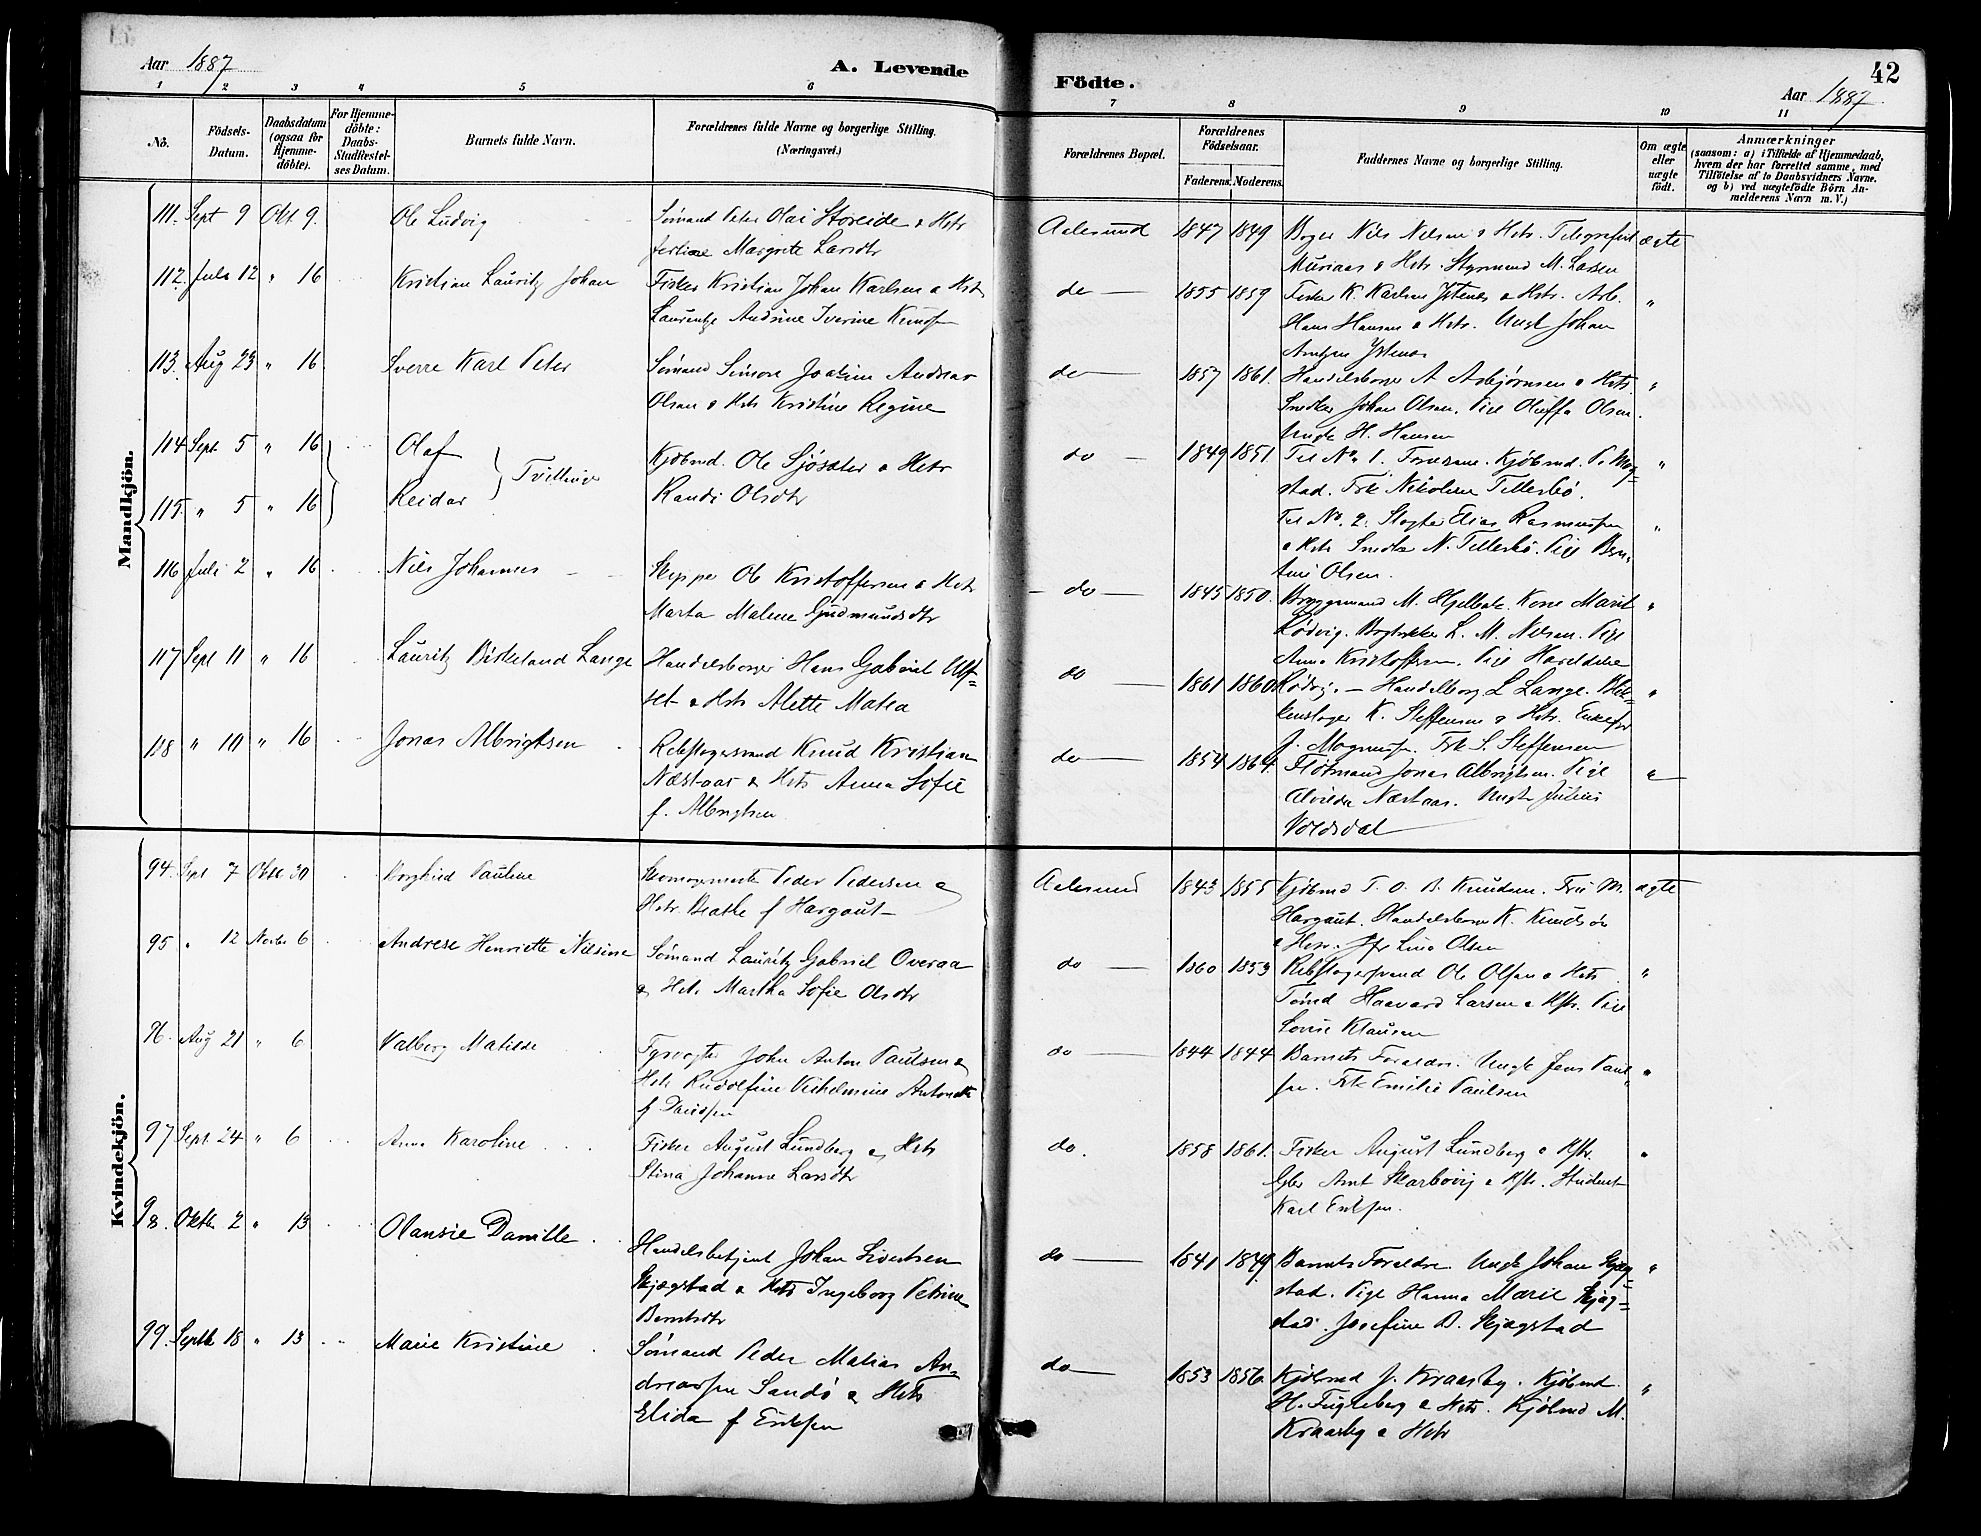 Aar 1887
A. Levende
Födte.
42
Aar 1887.
1 2 3 4 5 6 7 8 9 10 11
No.
Födsels-
Datum.
Daabsdatum
(ogsaa for
Hjemme-
döbte).
For Hjemme-
döbte:
Daabs-
Stadfæstel-
ses Datum.
Barnets fulde Navn.
Forældrenes fulde Navne og borgerlige Stilling.
(Næringsvei.)
Forældrenes Bopæl.
Forældrenes
Födselsaar.
Faderens. Moderens.
Faddernes Navne og borgerlige Stilling.
Om ægte
eller
uægte
födt.
Anmærkninger
(saasom: a) i Tilfælde af Hjemmedaab,
hvem der har forrettet samme, med
Tilföielse af to Daabsvidners Navne.
og b) ved uægtefödte Börn An-
melderens Navn m. V.)
Mandkjön.
111. Sept 9 Okt 9. Ole Ludvig
Sømand Peter Olai Storeide & Hstr
Margrete Larsdtr
Aalesund 1847 1849 Nils Nelsen & Hstr. Telegrafist ægte
& Hstr. Styrmand M. Larsen
112. Juli 12 " 16 Kristian Lauritz Johan
Fisker Kristian Johan Karlsen & Hstr
Laurentze Andrine Iverine Knudsen
do 1855 1859 Fisker K. Karlsen Ystenes & Hstr. Arb. "
Hans Hansen & Hstr. Ungk Johan
Arntzen Ystenes
113. Aug 23 " 16 Sverre Karl Peter
Sømand Simon Joakim Andreas
Olsen & Hstr Kristine Regine
do 1857 1861. Handelsborger A Asbjørnsen & Hstr "
Snedker Johan Olsen. Pige Oluffa Olsen.
Ungk H. Hansen
114 Sept 5 " 16 Olaf
115. " 5 " 16 Reidar
Tvillinger
Kjøbmd. Ole Sjösæter & Hstr
Randi Olsdtr
do 1849 1851. Til No. 1. Kjøbmd. P. Mog-
stad. Frk Nikoline Tellesbö.
Til No. 2. Slagter Elias Rasmussen
& Hstr Snedker N. Tellesbö. Pige Bern-
tine Olsen.
116 Juli 2 " 16 Nils Johannes
Skipper Ole Kristoffersen & Hstr
Marta Malene Gudmundsdtr
do 1845 1850. Bryggemand M. Hjelbak. Kone Marit "
Rödvig. Bogtrykker L. M. Nelsen. Pige
Anna Kristoffersen. Pige
Rödvig.
117 Sept 11 " 16 Lauritz Birkeland Lange
Handelsborger Hans Gabriel Ulf-
set & Hstr Alette Matea
do 1861 1860 Handelsborg L Lange. Blik-
kenslager K. Steffensen & Hstr. Enkefru
J. Magnussen. Frk S. Steffensen
118 " 10 " 16 Jonas Albrigtsen
Rebslagersvend Knud Kristian
Næstaas & Hstr Anna Sofie
f. Albrigtsen
do 1854 1864. Flötmand Jonas Albrigtsen. Pige
Alvilda Næstaas. Ungk Julius
Voldsdal
Kvindekjön.
94. Sept 7 Oktb 30 Borghild Pauline
Skomagermester Peder Pedersen &
Hstr Beathe f Hargaut
Aalesund 1843 1855 Kjöbmd P. O. B. Knudsen. Fru M. ægte
Hargaut. Handelsborger K. Knudsön
& Hstr. Jfr Lina Olsen
95 " 12 Novbr 6 Andrese Henriette Nilsine
Sømand Lauritz Gabriel Overaa
& Hstr Martha Sofie Olsdtr
do 1860 1853 Rebslagersvend Ole Olsen & Hstr "
Tömd Haavard Larsen & Hstr. Pige
Lovise Klausen
96. Aug 21 " 6 Valborg Matilde
Fyrvogter John Anton Paulsen &
Hstr Rudolfine Vilhelmine Antonette
f Davidsen
do 1844 1844 Barnets Forældre. Ungk Jens Paul-
sen. Frk Emilie Paulsen "
97 Sept 24 " 6 Anna Karoline
Fisker August Lundberg & Hstr
Stina Johanne Larsdtr
do. 1858 1861. Fisker August Lundberg & Hstr. "
Gbr Arnt Skarbövig & Hstr. Student
Karl Eriksen.
98. Oktb 2 " 13 Olansie Danille
Handelsbetjent Johan Sivertsen
Skjægstad & Hstr Ingeborg Petrine
Berntsdtr
do 1841 1849 Barnets Forældre. Ungk Johan Skjæg- "
stad. Pige Hanna Marie Skjæg-
stad. Josefine B. Skjægstad
99. Septb 18 " 13 Marie Kristine
Sømand Peder Matias An-
dreassen Sandö & Hstr
Elida f Eriksen
do 1853 1856. Kjöbmd J. Kraasby. Kjöbmd "
H. Fugleberg & Hstr. Kjöbmd M.
Kraasby & Hstr